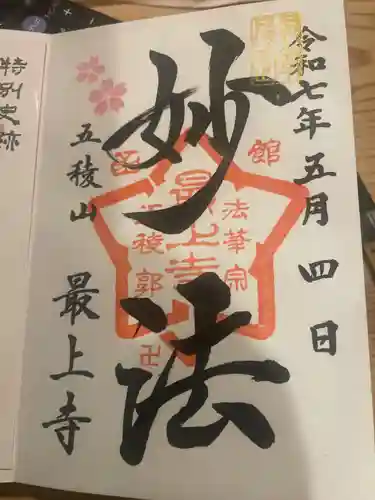 令和七年五月四日
妙法
五稜山 最上寺
函
館
法華宗
最上寺
五稜郭
卍
特別史跡